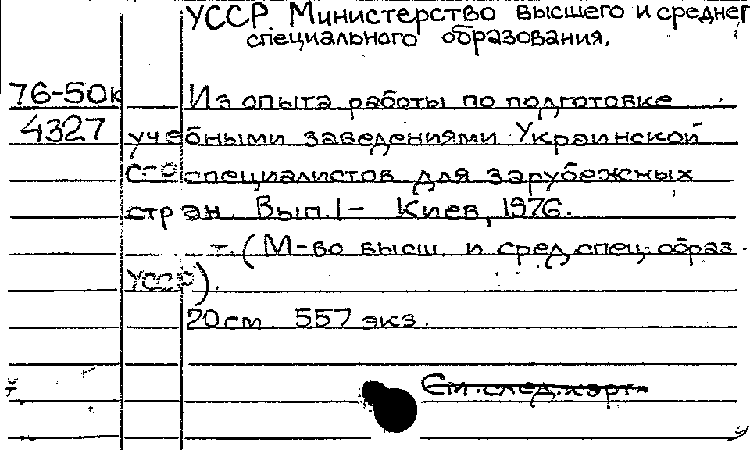 УССР. Министерство высшего и среднег
специального образования.
76-50к Из опыта работы по подготовке
4327 учебными заведениями Украинской
ССР специалистов для зарубежных
стран. Вып. 1- Киев, 1976.
т. (М-во высш. и сред. спец. образ.
УССР).
20 см 557 экз.
См. след. карт.